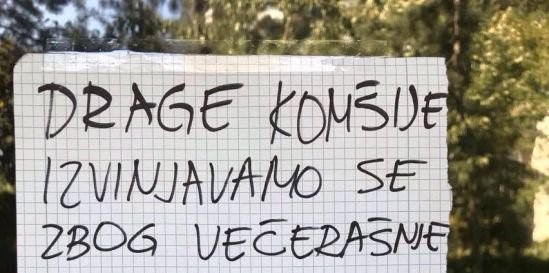 DRAGE KOMŠIJE
IZVINJAVAMO SE
ZBOG VEČERAŠNJE